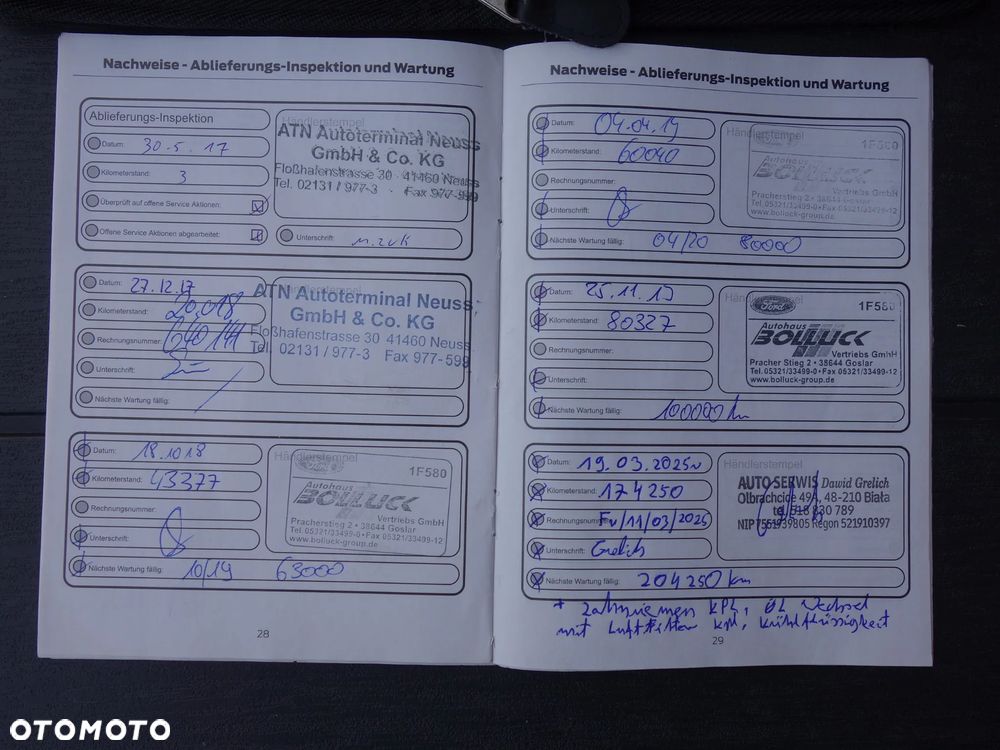 Nachweise - Ablieferungs-Inspektion und Wartung
Ablieferungs-Inspektion
Datum: 30.5.17
Kilometerstand: 3
Überprüft auf offene Service Aktionen:
Offene Service Aktionen abgearbeitet:
Händlerstempel
ATN Autoterminal Neuss
GmbH & Co. KG
Floßhafenstrasse 30 · 41460 Neuss
Tel. 02131 / 977-3 · Fax 977-599
Unterschrift:
Datum: 27.12.17
Kilometerstand: 20.018
Rechnungsnummer: 640141
Unterschrift:
Nächste Wartung fällig:
ATN Autoterminal Neuss
GmbH & Co. KG
Floßhafenstrasse 30 41460 Neuss
Tel. 02131 / 977-3 Fax 977-599
Datum: 18.10.18
Kilometerstand: 43377
Rechnungsnummer:
Unterschrift:
Nächste Wartung fällig: 10/19 63000
Händlerstempel
Ford 1F580
Autohaus
BOLLUCK
Vertriebs GmbH
Pracherstieg 2 • 38644 Goslar
Tel. 05321/33499-0 • Fax 05321/33499-12
www.bolluck-group.de
28
Nachweise - Ablieferungs-Inspektion und Wartung
Datum: 04.04.19
Kilometerstand: 60040
Rechnungsnummer:
Unterschrift:
Nächste Wartung fällig: 04/20 80000
Händlerstempel
1F580
Autohaus
BOLLUCK
Vertriebs GmbH
Pracherstieg 2 • 38644 Goslar
Tel. 05321/33499-0 • Fax 05321/33499-12
www.bolluck-group.de
Datum: 25.11.19
Kilometerstand: 80327
Rechnungsnummer:
Unterschrift:
Nächste Wartung fällig: 100000 km
Ford 1F580
Autohaus
BOLLUCK
Vertriebs GmbH
Pracher Stieg 2 • 38644 Goslar
Tel. 05321/33499-0 • Fax 05321/33499-12
www.bolluck-group.de
Datum: 19.03.2025r
Kilometerstand: 174250
Rechnungsnummer: Fv/11/03/2025
Unterschrift: Grelich
Nächste Wartung fällig: 204250 km
Händlerstempel
AUTO SERWIS Dawid Grelich
Olbrachcice 49A, 48-210 Biała
tel. 518 830 789
NIP 7551939805 Regon 521910397
* Zahnriemen kpl, Öl Wechsel
mit Luftfilter kpl, Kühlflüssigkeit
29
OTOMOTO